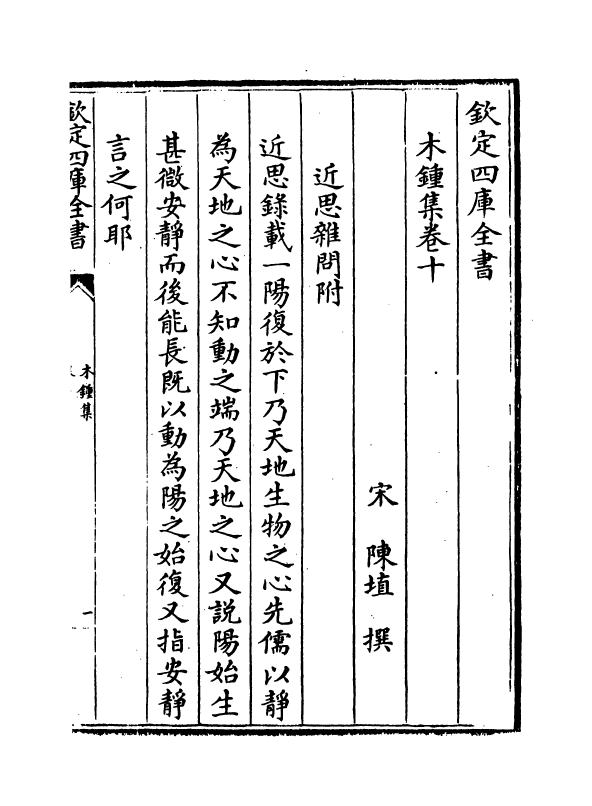 欽定四庫全書
木鍾集卷十
宋 陳埴 撰
近思雜問附
近思錄載一陽復於下乃天地生物之心先儒以靜
為天地之心不知動之端乃天地之心又説陽始生
甚微安靜而後能長既以動為陽之始復又指安靜
言之何耶
欽定四庫全書
木鍾集
一